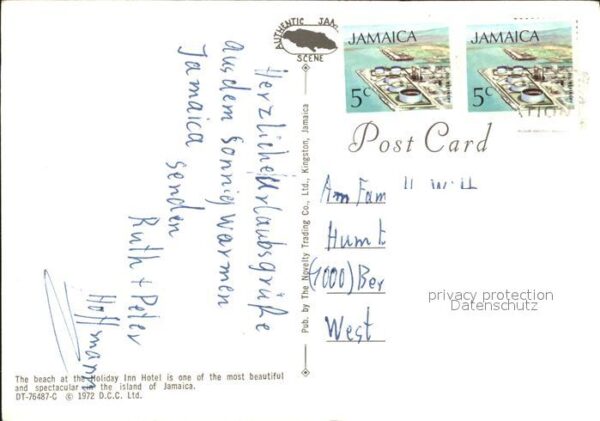 AUTHENTIC JAM.
SCENE
JAMAICA
5c
JAMAICA
5c
TION
Post Card
Herzliche Urlaubsgrüße
aus dem sonnig warmen
Jamaica senden
Ruth + Peter
Hoffmann
Pub. by The Novelty Trading Co., Ltd., Kingston, Jamaica
An Fam
Humt
(1000) Ber
West
privacy protection
Datenschutz
The beach at the Holiday Inn Hotel is one of the most beautiful
and spectacular in the island of Jamaica.
DT-76487-C © 1972 D.C.C. Ltd.